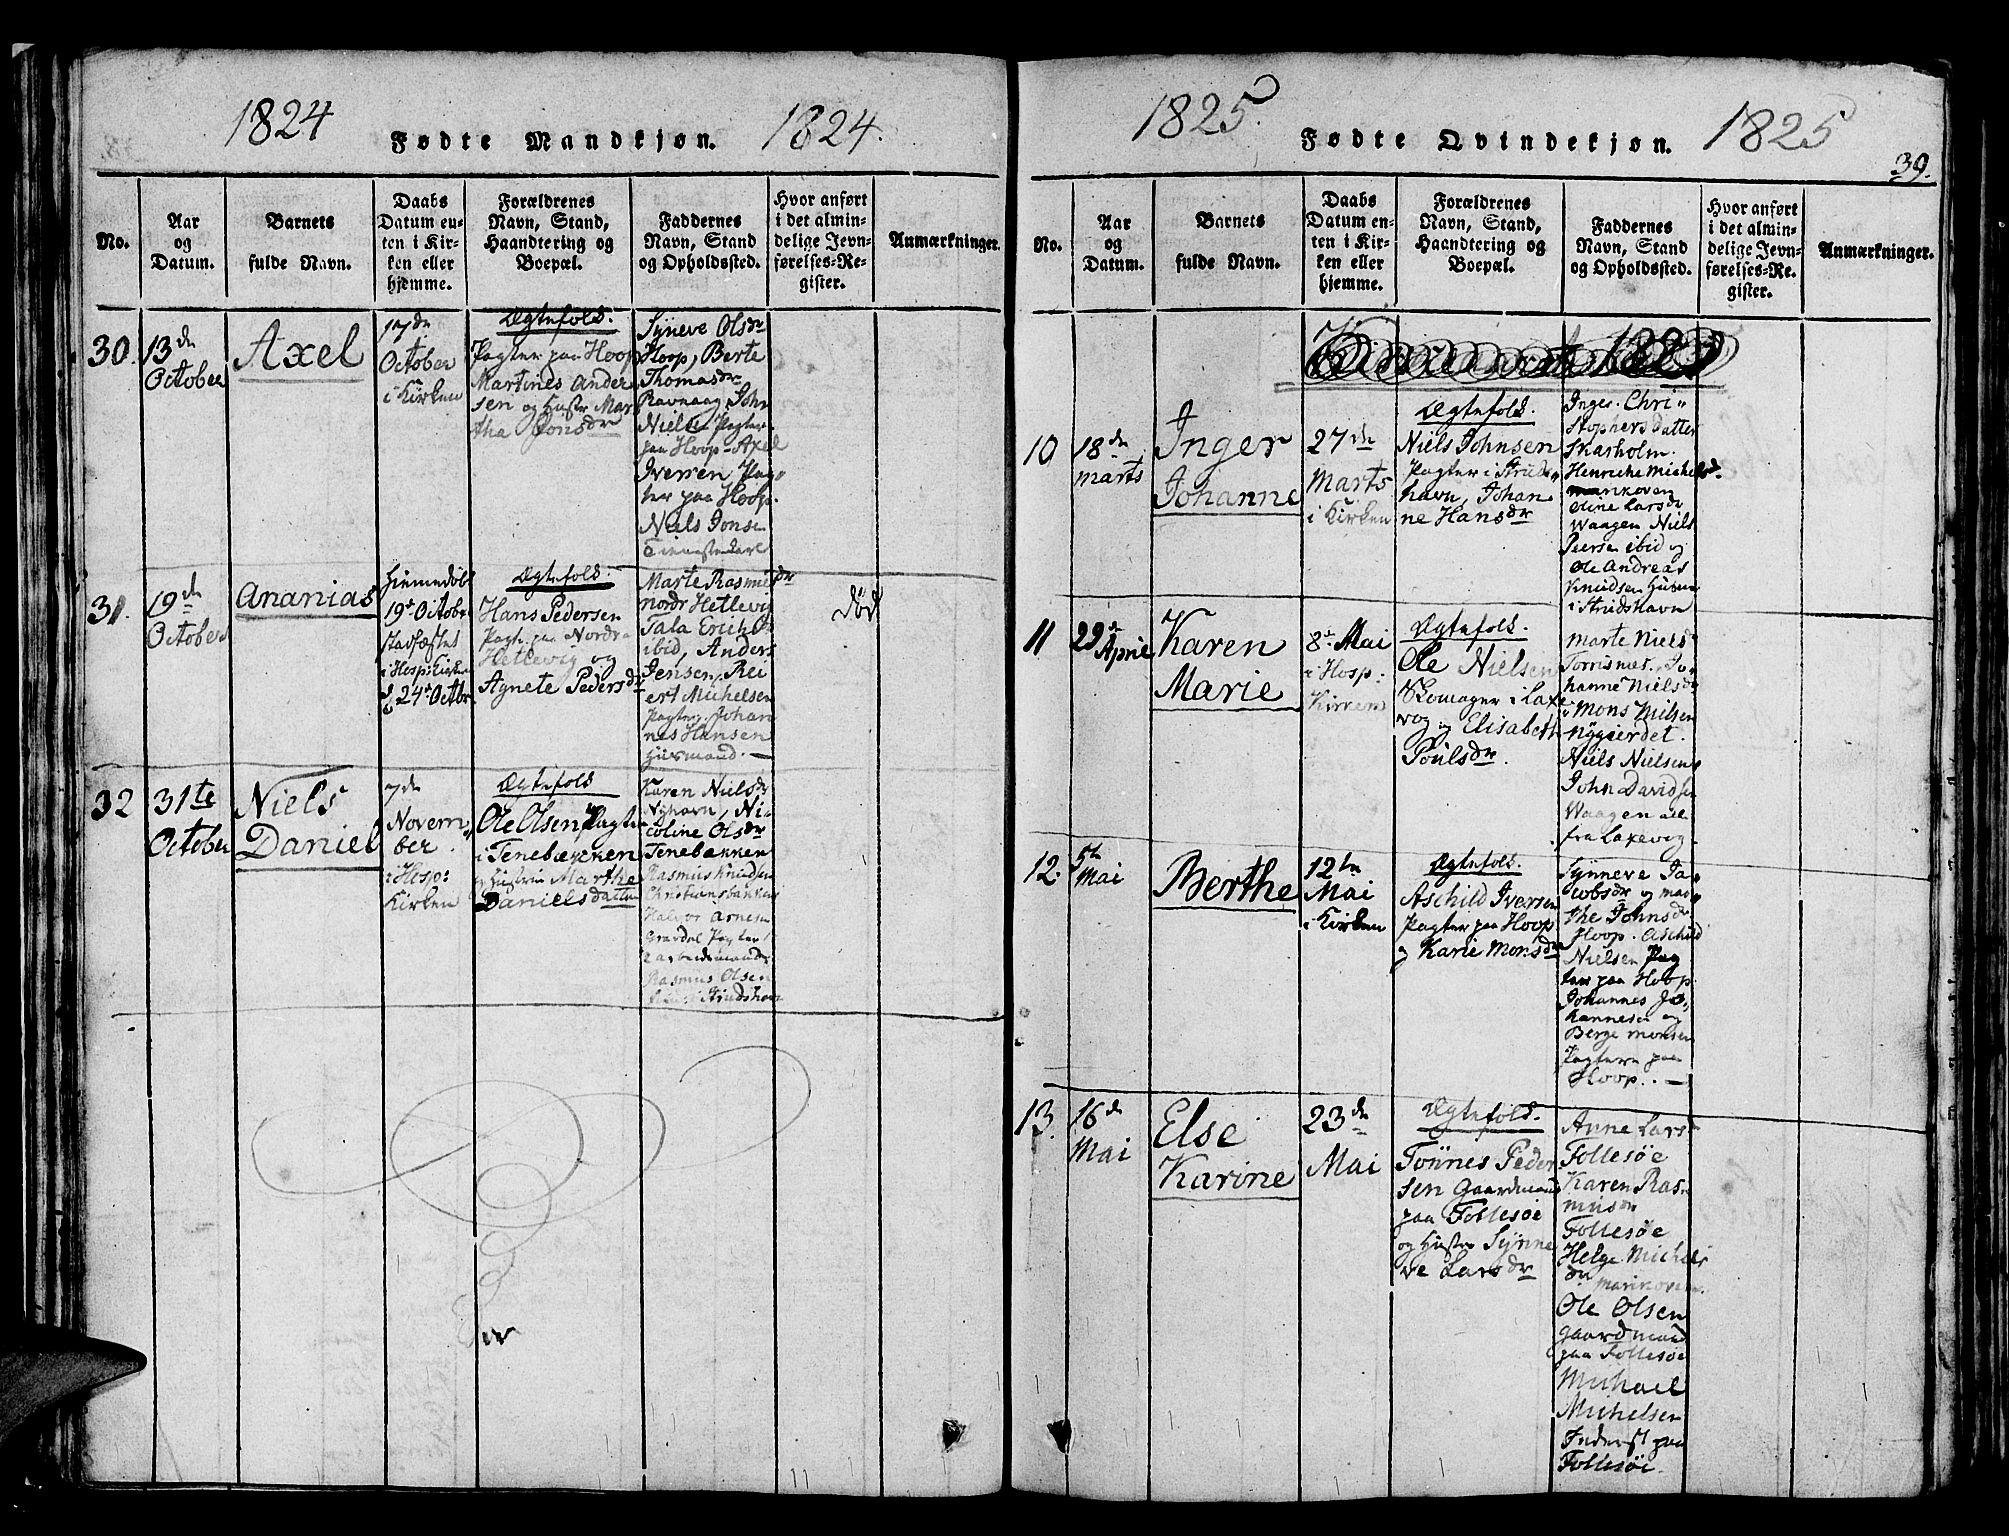 1824
Fødte Mandkjøn.
1824.
No.
Aar
og
Datum.
Barnets
fulde Navn.
Daabs
Datum en-
ten i Kir-
ken eller
hjemme.
Forældrenes
Navn, Stand,
Haandtering og
Boepæl.
Faddernes
Navn, Stand
og Opholdssted.
Hvor anført
i det almin-
delige Jevn-
førelses-Re-
gister.
Anmærkninger.
30.
13de
October
Axel
17de
October
i Kirken
Ægtefolk.
Pagter paa Hoop
Martines Ander
sen og Hustr Mar
tha Jonsdr
Syneve Olsdr
Hoop, Berte
Thomasdr
Ravnaag John
Nielsen Pagter
paa Hoop - Axel
Iverren Pag-
ter paa Hoop.
Niels Jonsen
Tienestekarl
31.
19de
October
Ananias
Hiemmedøbt
19de October
stadfæstet
i Hosp: Kirken
d 24de Octbr
Ægtefolk.
Hans Pedersen
Pagt. paa Nordre
Hetlevig og
Agnete Pedersdr
Marte Rasmusdr
nordr Hetlevig
Tala Erichsdr
ibid, Anders
Jensen, Rei
ert Michelsen
Pagter. Johan
nes Hansen
Huusmand. —
død
32
31te
October
Niels
Daniel
7de
Novem-
ber.
i Hosp:
Kirken
Ægtefolk
Ole Olsen Pagter
i Tenebækken
og Hustru Marthe
Danielsdatter
Karen Nielsdr
Nyhavn, Ni-
coline Olsdr
Tenebækken
Rasmus Knudsen
Christiansbakken
Halvor Arnesen
Gravdal Pagter
2 arbeidsmænd
Rasmus Olsen
i Strudshavn
1825.
Fødte Qvindekjøn.
1825
39.
No.
Aar
og
Datum.
Barnets
fulde Navn.
Daabs
Datum en-
ten i Kir-
ken eller
hjemme.
Forældrenes
Navn, Stand,
Haandtering og
Boepæl.
Faddernes
Navn, Stand
og Opholdssted.
Hvor anført
i det almin-
delige Jevn-
førelses-Re-
gister.
Anmærkninger.
10
18de
Marts
Inger
Johanne
27de
Marts
i Kirken
Ægtefolk.
Niels Johnsen
Pagter i Struds-
havn, Johan
ne Hansdr
Inger Chri-
stophersdatter
Skarholm.
Henricke Michelsd.
Marikoven
Oline Larsdr
Waagen Niels
Peersen ibid og
Ole Andreas
Knudsen Huusm
i Strudshavn
11
29de
April
Karen
Marie
8de Mai
i Hosp:
Kirken
Ægtefolk.
Ole Nielsen
Skomager i Laxe
vog og Elisabeth
Poulsdr
Marte Nielsdr
Torrisnæt. Jo-
hanne Nielsdr
Mons Nilsen
Nygierdet.
Niels Nielsen
John Davidsen
Waagen alle
fra Laxevog.
12.
5te
Mai
Berthe
12te
Mai
i Kirken
Ægtefolk.
Aschild Iversen
Pagter paa Hoop
og Karie Monsdr
Synneve Ja-
cobsdr og Mar-
the Johnsdr
Hoop. Aschild
Nielsen Pag
ter paa Hoop.
Johannes Jo-
hannesen og
Berge Monsen
Pagtere paa
Hoop. —
13.
16de
Mai
Else
Karine
23de
Mai
Ægtefolk.
Tönnes Peder
sen Gaardmand
paa Follesøe
og Hustr Synne
ve Larsdr
Anne Lars
Follesøe
Karen Ras-
musdr
Follesøe
Helge Michels
dr Marikoven.
Ole Olsen
Gaardmand
paa Follesøe
Michael
Michelsen
Inderst paa
Follesøe.